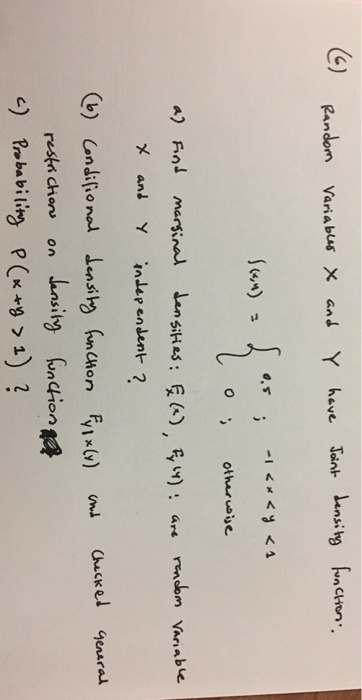 (6) Random Variables X and Y have Joint density function:.
f(x,y) = { 0.5 ; -1 < x < y < 1
0 ; otherwise
a) Find marginal densities: Fx(x), Fy(y) : are random variable
X and Y independent?
(b) Conditional density function Fy|x(y) and Checked general
restriction on density function
c) Probability P(x+y > 1) ?